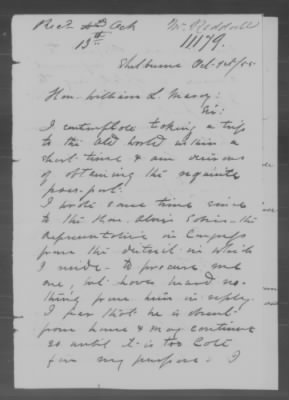 Recd & Ack
13th
Mr. Reddall
11179.
Shelburne Oct. 9th/55
Hon. William L. Marcy:
Sir:
I contemplate taking a trip
to the Old World within a
short time & am desirous
of obtaining the requisite
pass-port.
I wrote some time since
to the Hon. Alvah Sabin - the
Representative in Congress
from the district in which
I reside - to procure me
one, but have heard no-
thing from him in reply.
I fear that he is absent
from home & may continue
so until it is too late
for my purpose. I